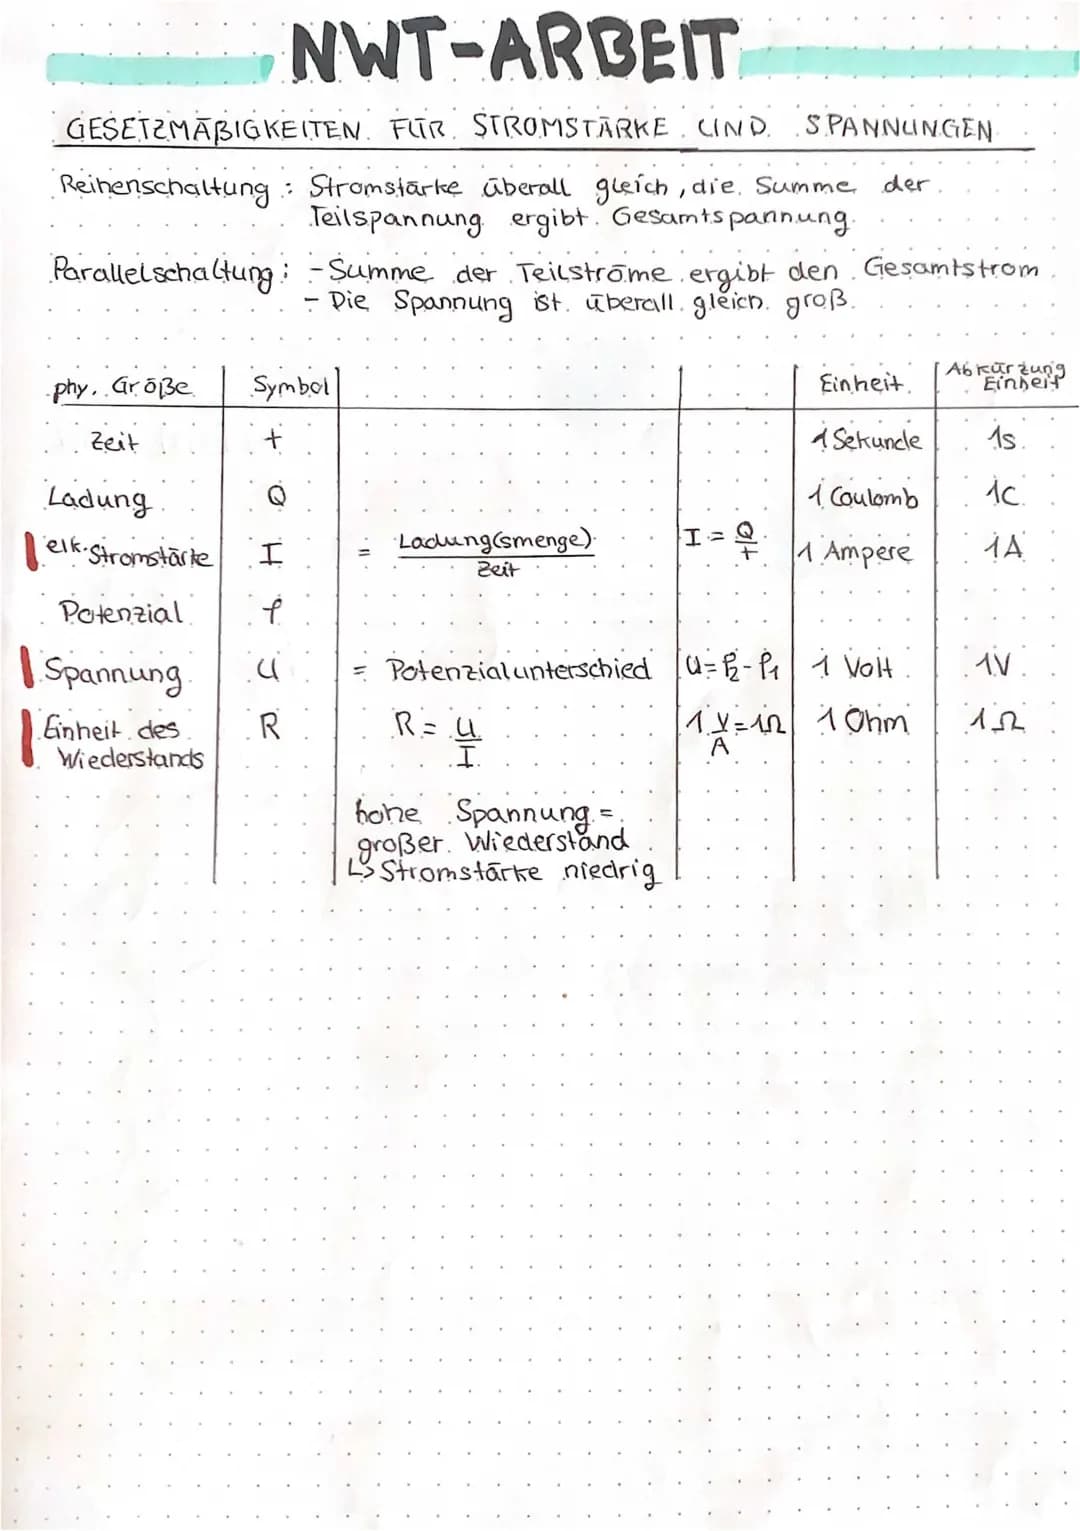 NWT-ARBEIT
GESETZMÄßIGKEITEN FÜR STROMSTÄRKE UND SPANNUNGEN
Reihenschaltung : Stromstärke überall gleich, die Summe der
Teilspannung ergibt Gesamtspannung.
Parallelschaltung : - Summe der Teilströme ergibt den Gesamtstrom
- Die Spannung ist überall gleich groß.
phy. Größe Symbol Einheit Abkürzung
Einheit
Zeit t 1 Sekunde 1s
Ladung Q 1 Coulomb 1C
elk. Stromstärke I = Ladung(smenge) I = Q 1 Ampere 1A
Zeit t
Potenzial φ
Spannung U = Potenzialunterschied U = φ2 - φ1 1 Volt 1V
Einheit des R R = U 1 V = 1Ω 1 Ohm 1Ω
Wiederstands I A
hohe Spannung =
großer Wiederstand
↳ Stromstärke niedrig